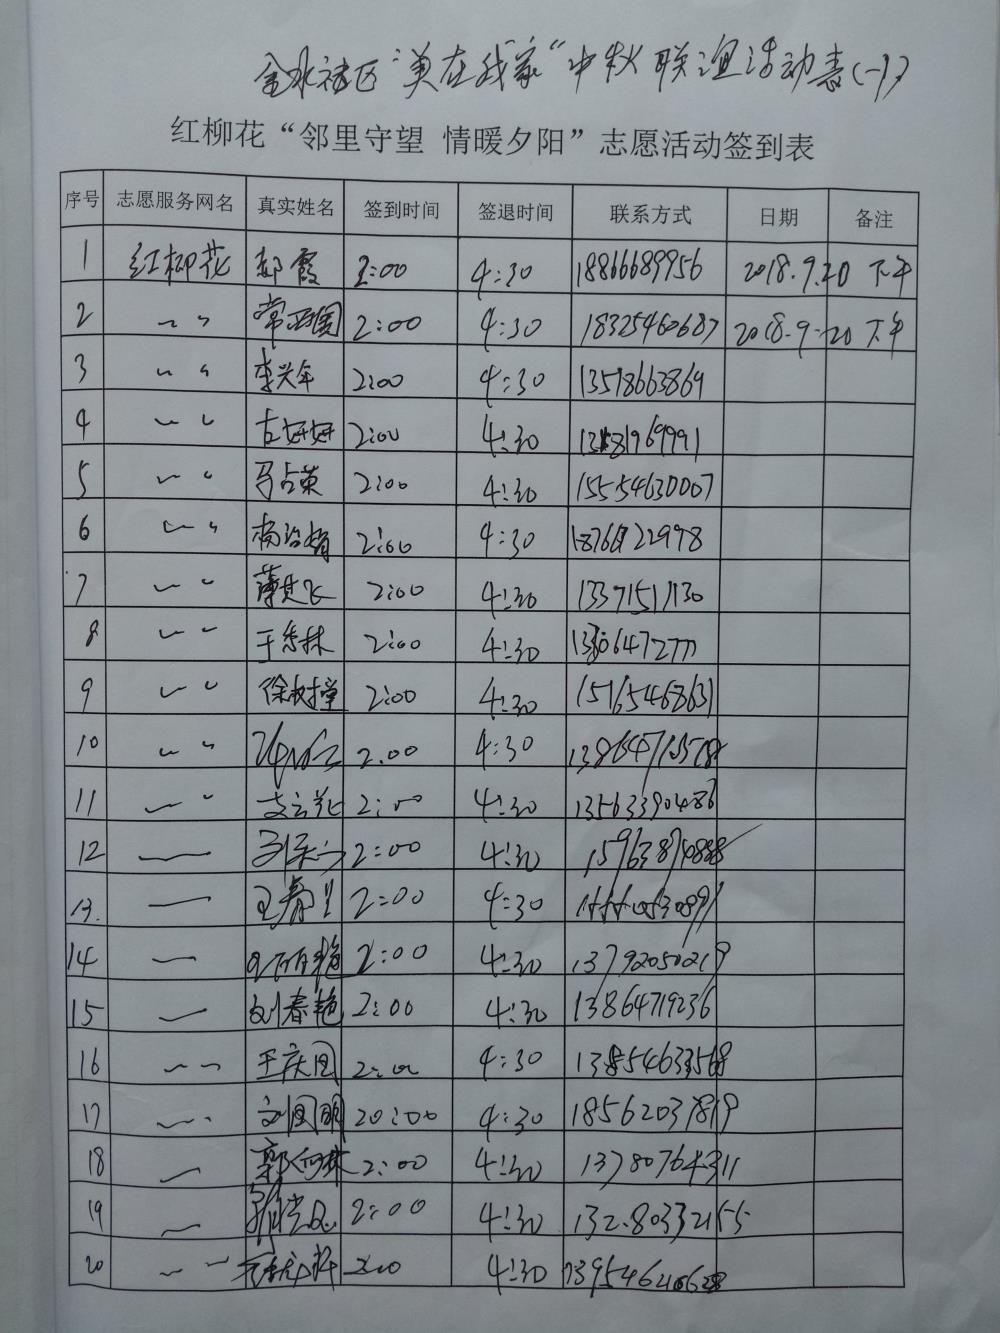 金水社区“美在我家”中秋联谊活动表(一)
红柳花“邻里守望 情暖夕阳”志愿活动签到表
序号 志愿服务网名 真实姓名 签到时间 签退时间 联系方式 日期 备注
1 红柳花 郝霞 2:00 4:30 18866689956 2018.9.20 下午
2 〃 2:00 4:30 18325460687 2018.9.20 下午
3 〃 李兴年 2:00 4:30 13518663869
4 〃 古妍妍 2:00 4:30
5 〃 马占英 2:00 4:30 15554630007
6 〃 2:00 4:30
7 〃 2:00 4:30 13371511130
8 〃 于秀林 2:00 4:30
9 〃 徐树堂 2:00 4:30 15165468631
10 〃 2:00 4:30
11 〃 支云花 2:00 4:30 13563390486
12 2:00 4:30
13 2:00 4:30
14 2:00 4:30 13792050219
15 刘春艳 2:00 4:30 13864719236
16 王庆国 2:00 4:30 13854633568
17 刘国明 20:00 4:30 18562037819
18 2:00 4:30 13780764311
19 2:00 4:30 13280332155
20 4:30